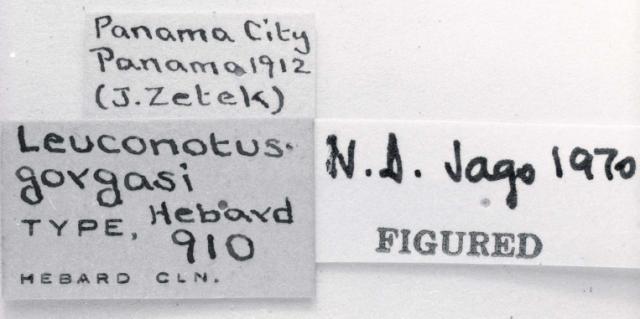 Panama City
Panama 1912
(J. Zetek)
Leuconotus
gorgasi
TYPE, Hebard
910
HEBARD CLN.
N.D. Jago 1970
FIGURED